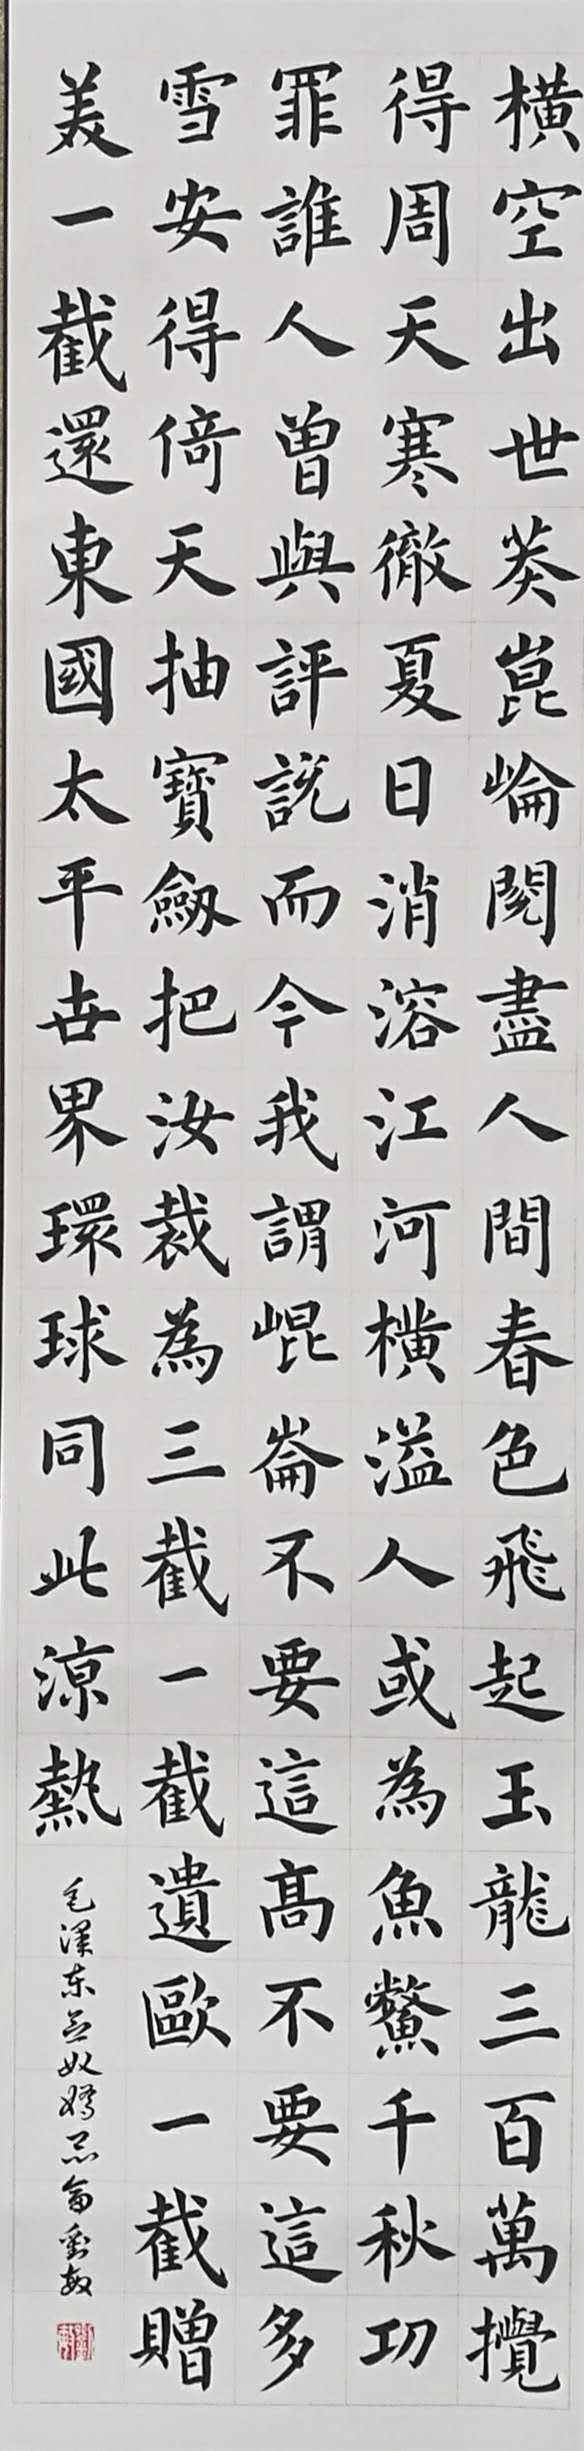 橫空出世莽崑崘閱盡人間春色飛起玉龍三百萬攪
得周天寒徹夏日消溶江河橫溢人或為魚鱉千秋功
罪誰人曾與評説而今我謂崐崙不要這髙不要這多
雪安得倚天抽寶劒把汝裁為三截一截遺歐一截贈
美一截還東國太平世界環球同此涼熱
毛澤东念奴嬌昆侖劉敏